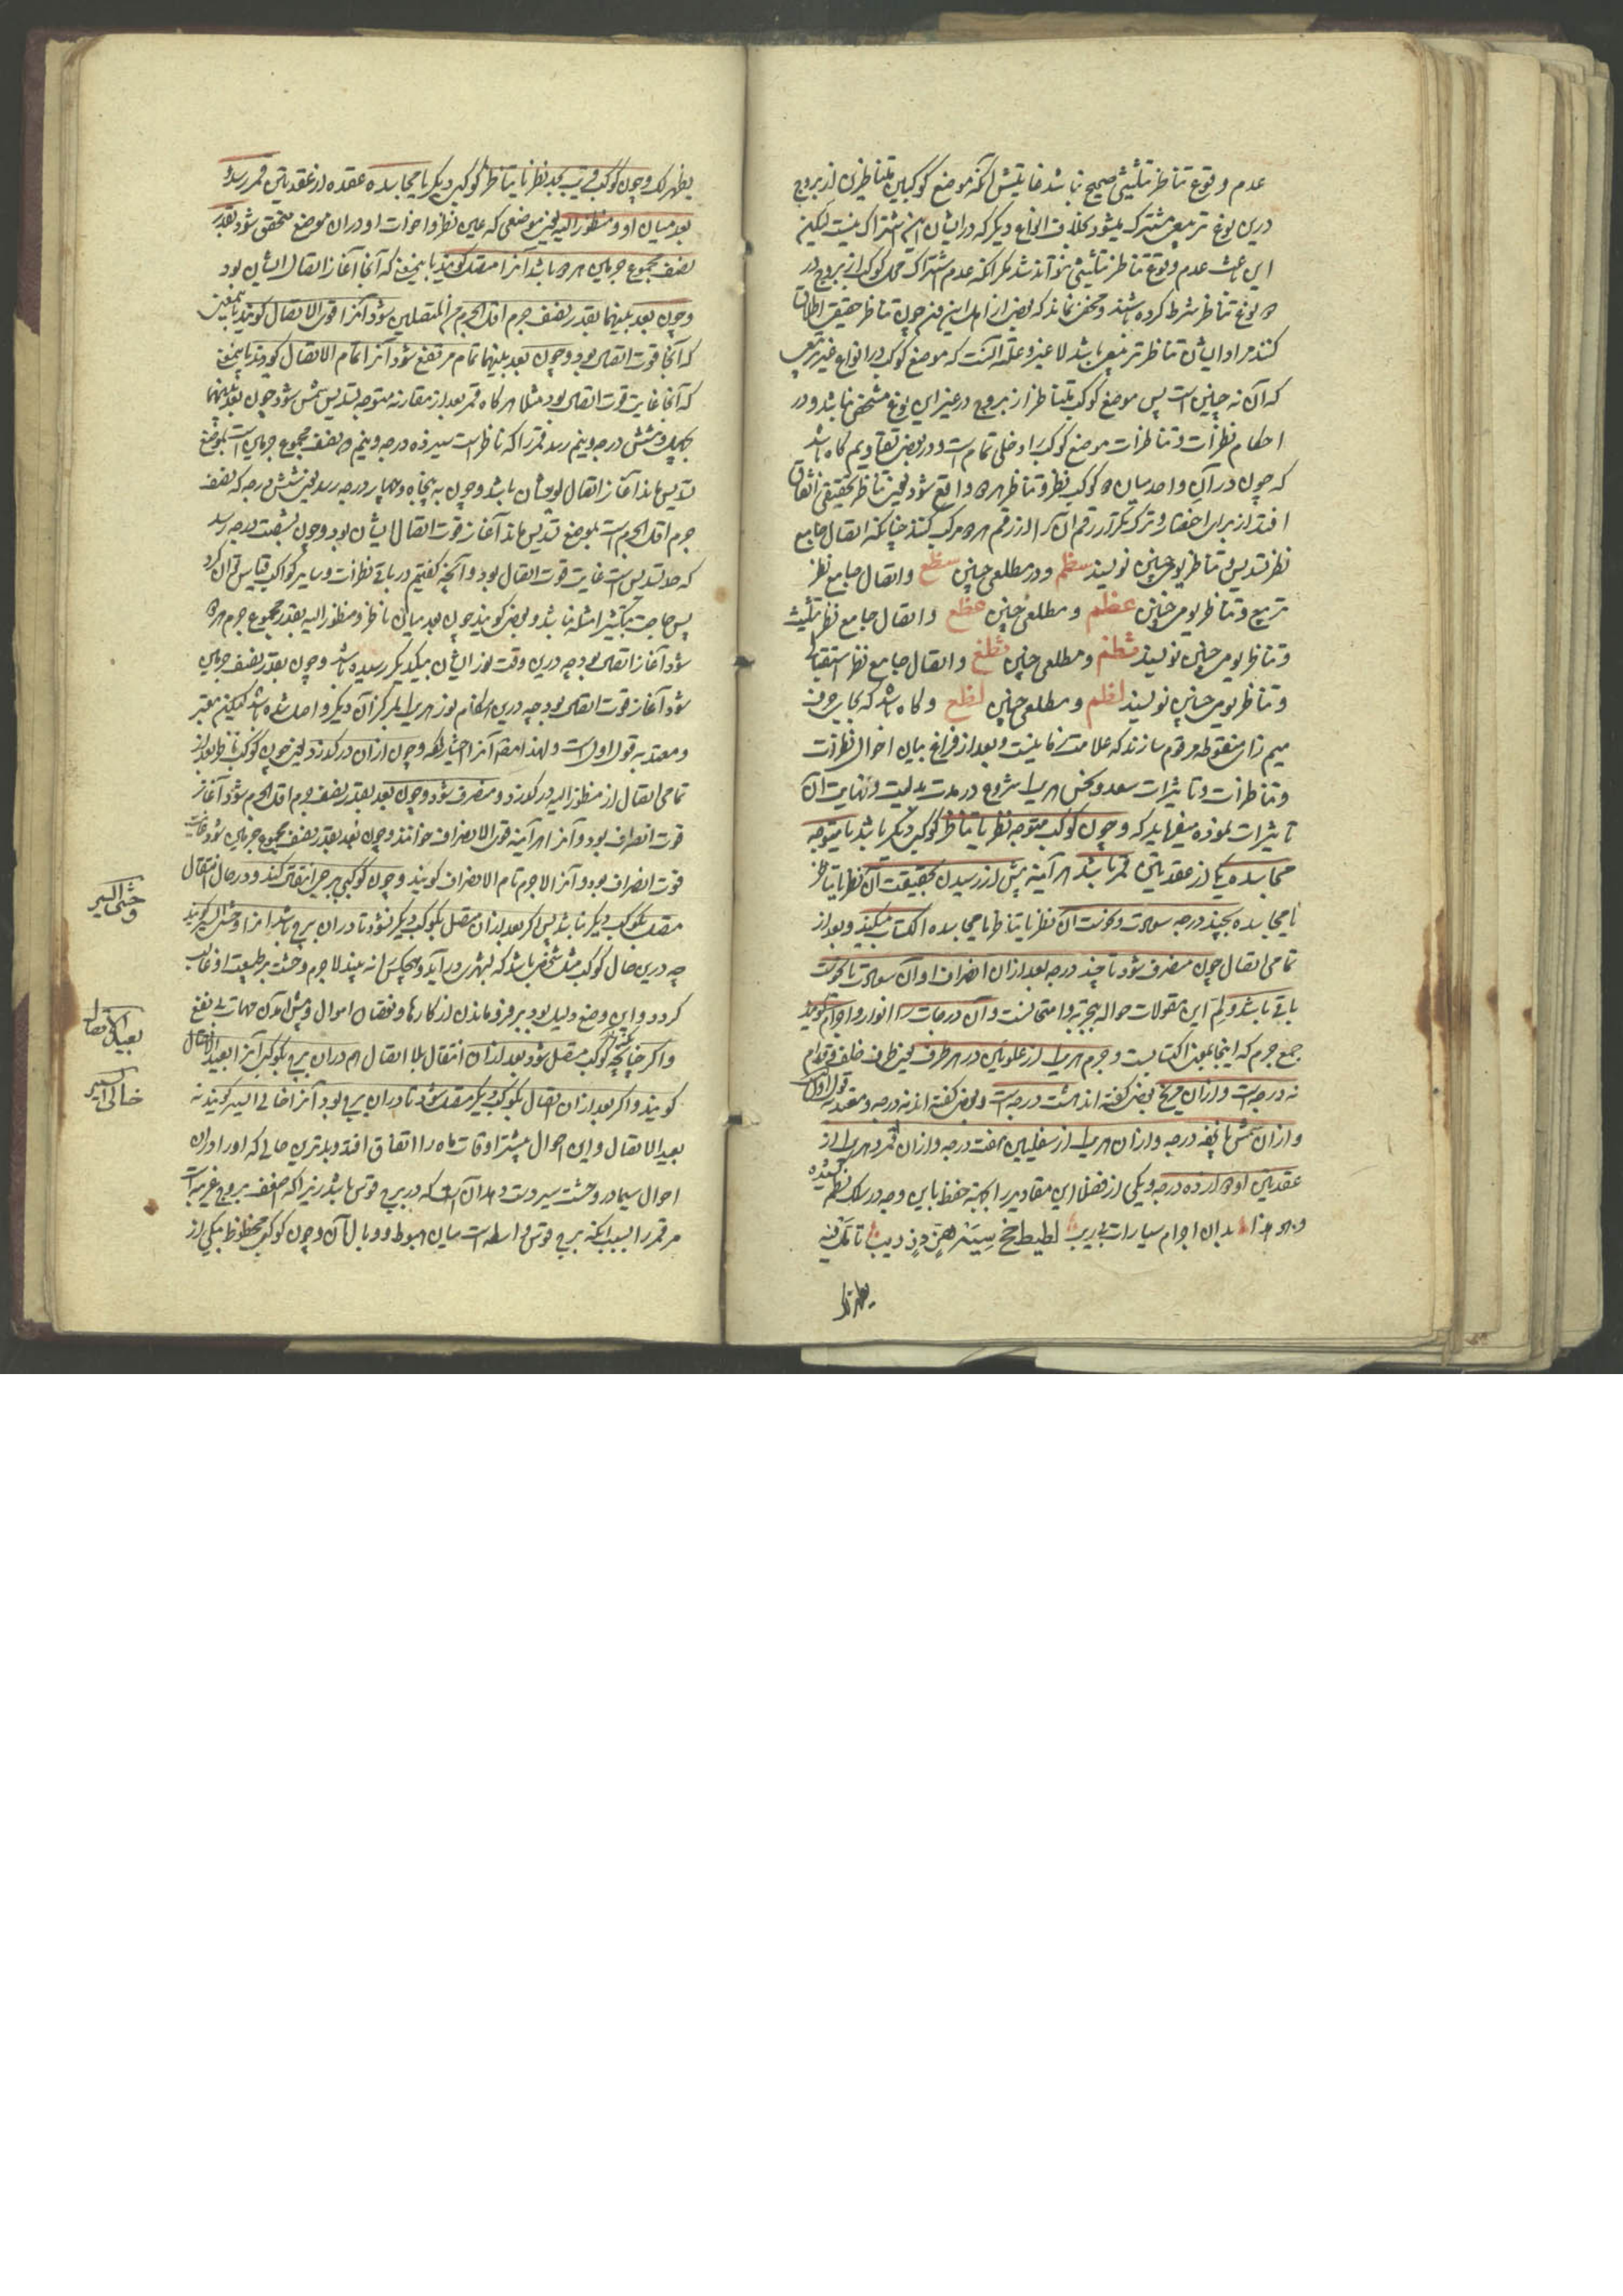 عدم وقوع تناظر تثلیثی صحیح نباشد غایتش آنکه موضع کوکبین متناظرین از بروج
درین نوع تربیعی مشترک میشود بخلاف انواع دیگر که در ایشان این اشتراک نیست لیکن
این باعث عدم وقوع تناظر تثلیثی نتواند شد مگر آنکه عدم اشتراک محل کوکب از بروج در
نوع تناظر شرط کرده باشند و مخفی نماند که بعضی از اهل این فن چون تناظر حقیقی اطلاق
کنند مراد ایشان تناظر تربیعی باشد لا غیر و علته آنست که موضع کوکب در انواع غیر تربیعی
که آن نه چنین است پس موضع کوکب متناظر از بروج در غیر این نوع مشخص نباشد و در
احکام نظرات و تناظرات موضع کوکب را دخلی تمام است و در بعضی تقاویم گاه باشد
که چون در آن واحد میان دو کوکب نظر و تناظر هر دو واقع شود یعنی تناظر حقیقی اتفاق
افتد از برای اختصار و ترک تکرار رقم آن را از رقم هر دو مرکب کنند چنانکه اتصال جامع
نظر تسدیس و تناظر یومی چنین نویسند سظم و در مطلعی چنین سظع و اتصال جامع نظر
تربیع و تناظر یومی چنین عظم و مطلعی چنین عظع و اتصال جامع نظر تثلیث
و تناظر یومی چنین نویسند ثظم و مطلعی چنین ثظع و اتصال جامع نظر استقبال
و تناظر یومی چنین نویسند لظم و مطلعی چنین لظع و گاه باشد که بجای حرف
میم زای منقوطه مرقوم سازند که علامت زمانیست و بعد از فراغ بیان احوال نظرات
و تناظرات و تاثیرات سعد و نحس هر یک شروع در مدت بدایت و نهایت آن
تاثیرات نموده میفرماید که و چون کوکب متوجه نظر یا تناظر کوکبی دیگر باشد یا متوجه
مجاسده یکی از عقدتین قمر باشد هر آینه پیش از رسیدن بحقیقت آن نظر یا تناظر
یا مجاسده بچند درجه سعادت و نحوست آن نظر یا تناظر یا مجاسده اکتساب میکند و بعد از
تمامی اتصال چون منصرف شود تا چند درجه بعد از آن انصراف او آن سعادت یا نحوست
باقی باشد و لم این مقولات حواله بتجربه و امتحانست و آن درجات را انوار و اجرام گویند
جمع جرم که اینجا بمعنی اکتسابست و جرم هر یک از علویین در هر طرف یعنی طرف خلف و قدام
نه درجه است و از آن مریخ بعضی گفته اند هشت درجه است و بعضی گفته اند نه درجه و معتمد قول اول
و از آن شمس پانزده درجه و از آن هر یک از سفلیین هفت درجه و از آن قمر و هر یک از
عقدتین او دوازده درجه و یکی از فضلا این مقادیر را بجهة حفظ باین وجه در سلک نظم کشیده
و هو هذا بدان اجرام سیارات بی ریب
یظهر لک
یظهر لک و چون کوکب قریب بحد نظر یا تناظر کوکبی دیگر یا مجاسده عقده از عقدتین قمر رسد و
بعد میان او و منظور الیه یعنی موضعی که عین نظر و اخوات او در آن موضع متحقق شود بقدر
نصف مجموع جرمین هر دو باشد آنرا متصل گویند باین معنی که آنجا آغاز اتصال ایشان بود
و چون بعد بینهما بقدر نصف جرم اقل الجرم من المتصلین شود آنرا قوی الاتصال گویند باینمعنی
که آنجا قوت اتصال بود و چون بعد بینهما تمام مرتفع شود آنرا تمام الاتصال گویند باینمعنی
که آنجا غایت قوت اتصال بود مثلا هرگاه قمر بعد از مقارنه متوجه تسدیس شمس شود چون بعد بینهما
بچهل و شش درجه و نیم رسد قمر را که ناظر است سیزده درجه و نیم که نصف مجموع جرمین است بموضع
تسدیس ماند آغاز اتصال ایشان باشد و چون به پنجاه و چهار درجه رسد یعنی شش درجه که نصف
جرم اقل الجرم است بموضع تسدیس ماند آغاز قوت اتصال ایشان بود و چون بشصت درجه رسد
که حد تسدیس است غایت قوت اتصال بود و آنچه گفتیم در باقی نظرات و سایر کواکب قیاس توان کرد
پس حاجت بتکثیر امثله نباشد و بعضی گویند چون بعد میان ناظر و منظور الیه بقدر مجموع جرم هر دو
شود آغاز اتصال بود چه درین وقت نور ایشان بیکدیگر رسیده باشد و چون بقدر نصف جرمین
شود آغاز قوت اتصال بود چه درین هنگام نور هر یک بمرکز آن دیگر واصل شده باشد لیکن معتبر
و معتمد به قول اول است و لهذا مصنف آنرا اختیار نموده و چون از آن درگذرد یعنی چون کوکب ناظر بعد از
تمامی اتصال از منظور الیه درگذرد و منصرف شود و چون بعد بقدر نصف جرم اقل الجرم شود آغاز
قوت انصراف بود و آنرا هر آینه قوی الانصراف خوانند و چون بعد بقدر نصف مجموع جرمین شود غایت
قوت انصراف بود و آنرا لاجرم تمام الانصراف گویند و چون کوکبی ببرجی انتقال کند و در حال انتقال
متصل بکوکبی دیگر نباشد پس اگر بعد از آن متصل بکوکبی دیگر نشود تا در آن برج باشد آنرا وحشی السیر گویند
چه درین حال کوکب مثل شخصی باشد که بشهری درآید و هیچکس را نه بیند لاجرم وحشت بر طبیعت او غالب
گردد و این وضع دلیل بود بر فرو ماندن از کارها و نقصان اموال و پیش آمدن مهمات بی نفع
و اگر چنانچه کوکب متصل شود بعد از آن انتقال بلا اتصال هم در آن برج بکوکبی آنرا بعید الاتصال
گویند و اگر بعد از آن اتصال بکوکبی دیگر متصل نشود تا در آن برج بود آنرا خالی السیر گویند نه
بعید الاتصال و این احوال بیشتر اوقات ماه را اتفاق افتد و بدترین حالی که او را در آن
احوال سیما در وحشت سیر دست دهد آن است که در برج قوس باشد زیرا که اضعف بروج غریبه است
مر قمر را بسبب آنکه برج قوس واسطه است میان هبوط و وبال آن و چون کوکب محظوظ بیکی از
وحشی السیر
بعید الاتصال
خالی السیر